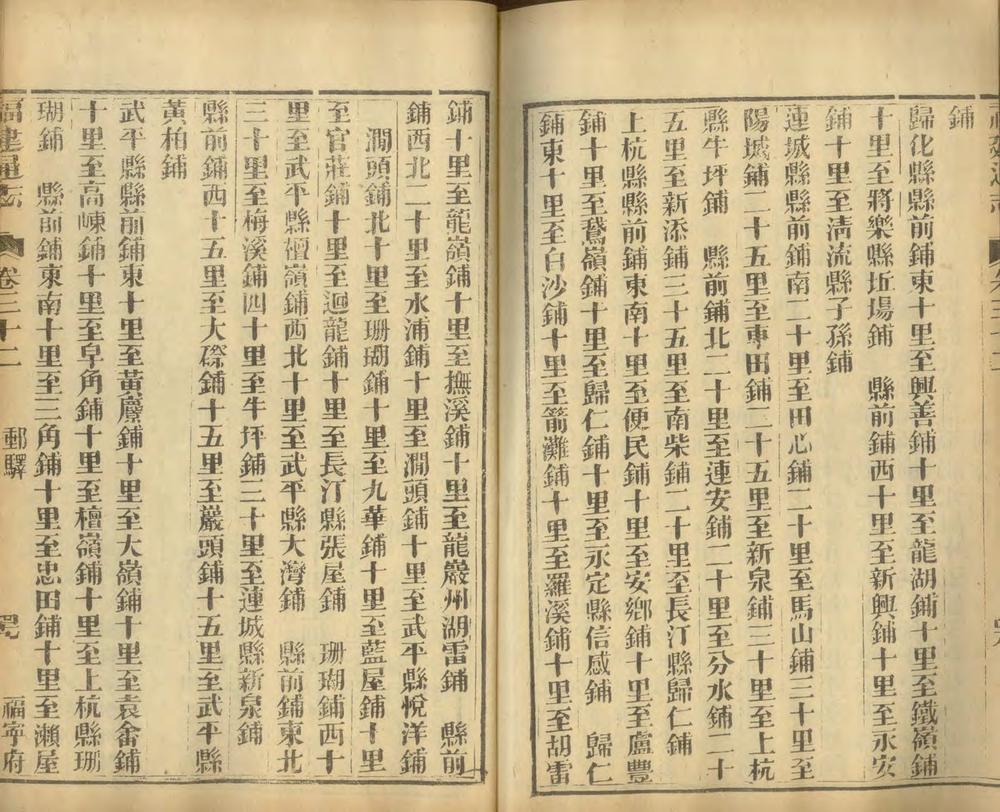 鋪
歸化縣縣前鋪東十里至興善鋪十里至龍湖鋪十里至鐵嶺鋪
十里至將樂縣坵場鋪　縣前鋪西十里至新興鋪十里至永安
鋪十里至淸流縣子孫鋪
連城縣縣前鋪南二十里至田心鋪二十里至馬山鋪三十里至
陽城鋪二十五里至專田鋪二十五里至新泉鋪三十里至上杭
縣牛坪鋪　縣前鋪北二十里至連安鋪二十里至分水鋪二十
五里至新添鋪三十五里至南柴鋪二十里至長汀縣歸仁鋪
上杭縣縣前鋪東南十里至便民鋪十里至安鄉鋪十里至盧豐
鋪十里至鵞嶺鋪十里至歸仁鋪十里至永定縣信感鋪　歸仁
鋪東十里至白沙鋪十里至箭灘鋪十里至羅溪鋪十里至胡雷
鋪十里至龍嶺鋪十里至撫溪鋪十里至龍巖州湖雷鋪　縣前
鋪西北二十里至水浦鋪十里至澗頭鋪十里至武平縣悅洋鋪
澗頭鋪北十里至珊瑚鋪十里至九華鋪十里至藍屋鋪十里
至官莊鋪十里至迴龍鋪十里至長汀縣張屋鋪　珊瑚鋪西十
里至武平縣檀嶺鋪西北十里至武平縣大灣鋪　縣前鋪東北
三十里至梅溪鋪四十里至牛坪鋪三十里至連城縣新泉鋪
縣前鋪西十五里至大磜鋪十五里至巖頭鋪十五里至武平縣
黃柏鋪
武平縣縣前鋪東十里至黃麖鋪十里至大嶺鋪十里至袁畬鋪
十里至高崠鋪十里至阜角鋪十里至檀嶺鋪十里至上杭縣珊
瑚鋪　縣前鋪東南十里至三角鋪十里至忠田鋪十里至瀨屋
福建通志　卷三十二　郵驛　福寧府